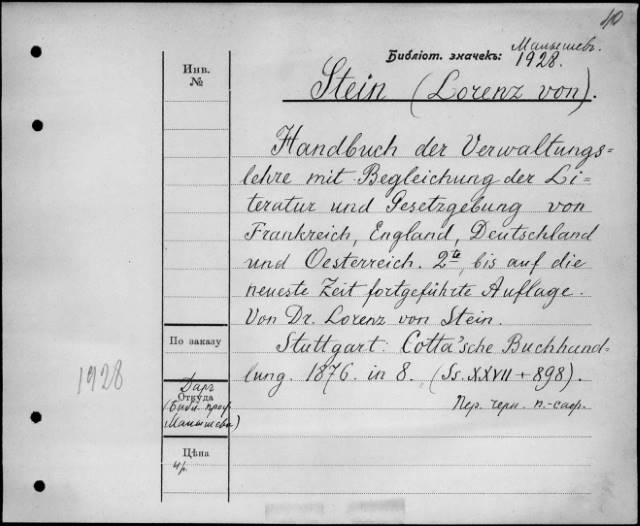 40
Библіот. значекъ: Малышевъ.
1928.
Инв.
№
Stein (Lorenz von).
Handbuch der Verwaltungs=
lehre mit Begleichung der Li=
teratur und Gesetzgebung von
Frankreich, England, Deutschland
und Oesterreich. 2te, bis auf die
neueste Zeit fortgeführte Auflage.
Von Dr. Lorenz von Stein.
По заказу
Stuttgart: Cotta'sche Buchhand-
lung. 1876. in 8. (Ss. XXVII + 898).
1928
Даръ
Откуда
(Библ. проф.
Малышева)
Пер. черн. п.-саф.
Цѣна
4р.